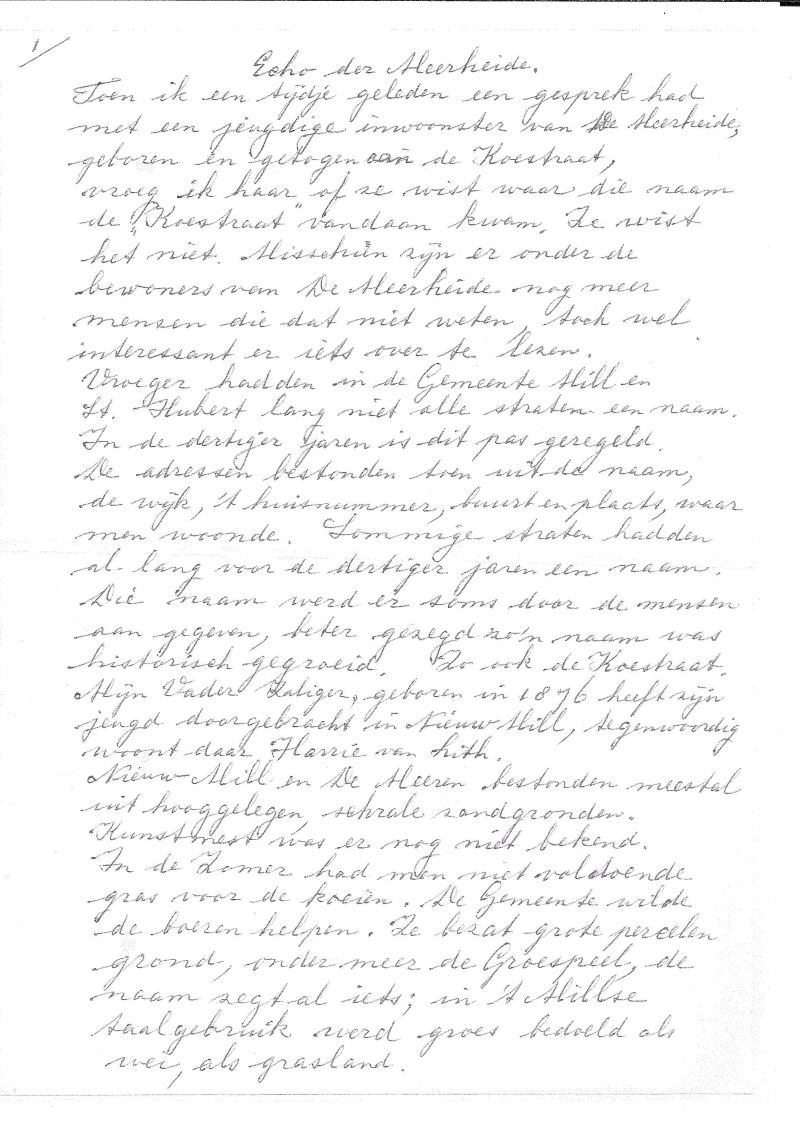 1
Echo der Meerheide.
Toen ik een tijdje geleden een gesprek had
met een jeugdige inwoonster van De Meerheide,
geboren en getogen aan de Koestraat,
vroeg ik haar of ze wist waar die naam
de "Koestraat" vandaan kwam. Ze wist
het niet. Misschien zijn er onder de
bewoners van De Meerheide nog meer
mensen die dat niet weten, toch wel
interessant er iets over te lezen.
Vroeger hadden in de Gemeente Mill en
St. Hubert lang niet alle straten een naam.
In de dertiger jaren is dit pas geregeld.
De adressen bestonden toen uit de naam,
de wijk, 't huisnummer, buurt en plaats, waar
men woonde. Sommige straten hadden
al lang voor de dertiger jaren een naam.
Die naam werd er soms door de mensen
aan gegeven, beter gezegd zo'n naam was
historisch gegroeid. Zo ook de Koestraat.
Mijn Vader Zaliger, geboren in 1876 heeft zijn
jeugd doorgebracht in Nieuw Mill, tegenwoordig
woont daar Harrie van Lith.
Nieuw-Mill en De Meeren bestonden meestal
uit hooggelegen, schrale zandgronden.
Kunstmest was er nog niet bekend.
In de Zomer had men niet voldoende
gras voor de koeien. De Gemeente wilde
de boeren helpen. Ze bezat grote percelen
grond, onder meer de Groespeel, de
naam zegt al iets; in 't Millse
taalgebruik werd groes bedoeld als
wei, als grasland.